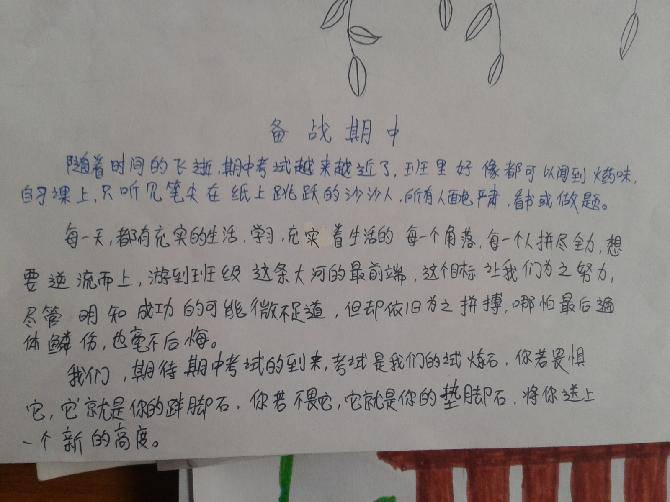 备战期中
随着时间的飞逝,期中考试越来越近了,班里好像都可以闻到火药味,
自习课上,只听见笔尖在纸上跳跃的沙沙人,所有人面色严肃,看书或做题。
每一天,都有充实的生活,学习,充实着生活的每一个角落,每一个人拼尽全力,想
要逆流而上,游到班级这条大河的最前端,这个目标让我们为之努力,
尽管明知成功的可能微不足道,但却依旧为之拼搏,哪怕最后遍
体鳞伤,也毫不后悔。
我们,期待期中考试的到来,考试是我们的试炼石,你若畏惧
它,它就是你的跘脚石,你若不畏它,它就是你的垫脚石,将你送上
一个新的高度。